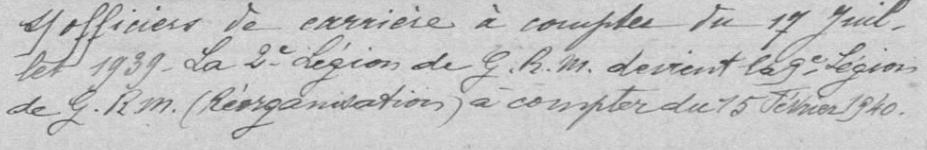 s/officiers de carrière à compter du 17 Juil-
let 1939 - La 2e Légion de G.R.M. devient la 9e Légion
de G.R.M. (Réorganisation) à compter du 15 Février 1940.